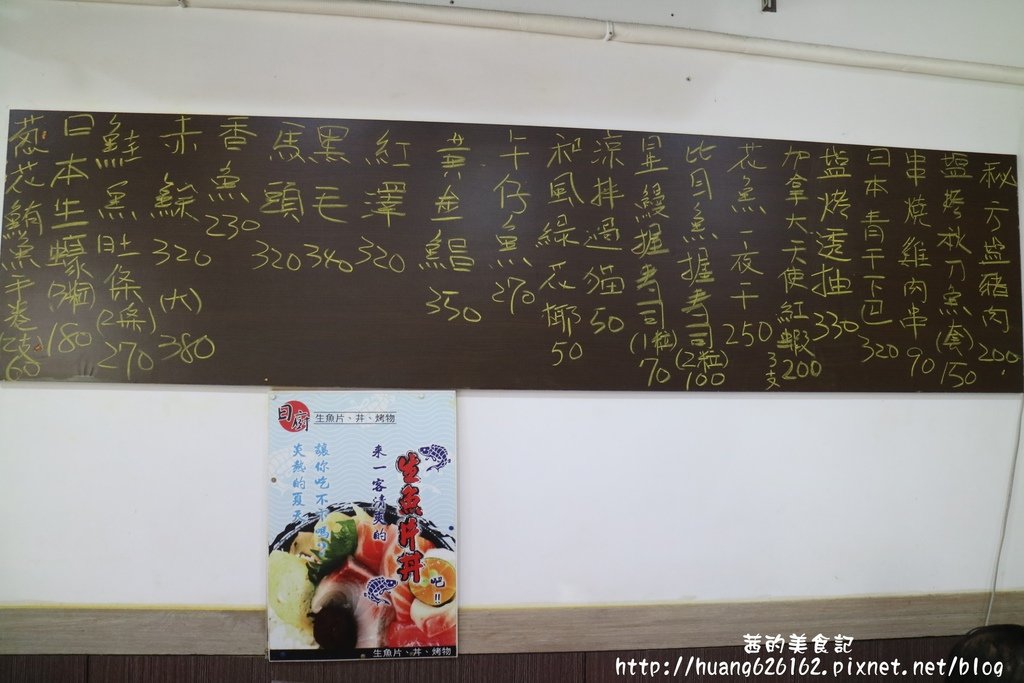 秘方鹽豬肉 200
鹽烤秋刀魚(套) 150
串燒雞肉串 90
日本青干下巴 320
鹽烤透抽 330
加拿大天使紅蝦 3支 200
花魚一夜干 250
比目魚握壽司 (2粒) 100
星鰻握壽司 (1粒) 70
涼拌過貓 50
和風綠花椰 50
午仔魚 270
黃金鯧 350
紅澤 320
黑毛 340
馬頭 320
香魚 230
赤鯮 320 (大) 380
鮭魚肚條 (2條) 270
日本生蠔 (3粒) 180
蔥花鮪魚手卷 (2支) 60
日廚
生魚片、丼、烤物
生魚片丼
來一客清爽的
吧!!
讓你吃不下嗎?
炎熱的夏天
生魚片、丼、烤物
茜的美食記
http://huang626162.pixnet.net/blog